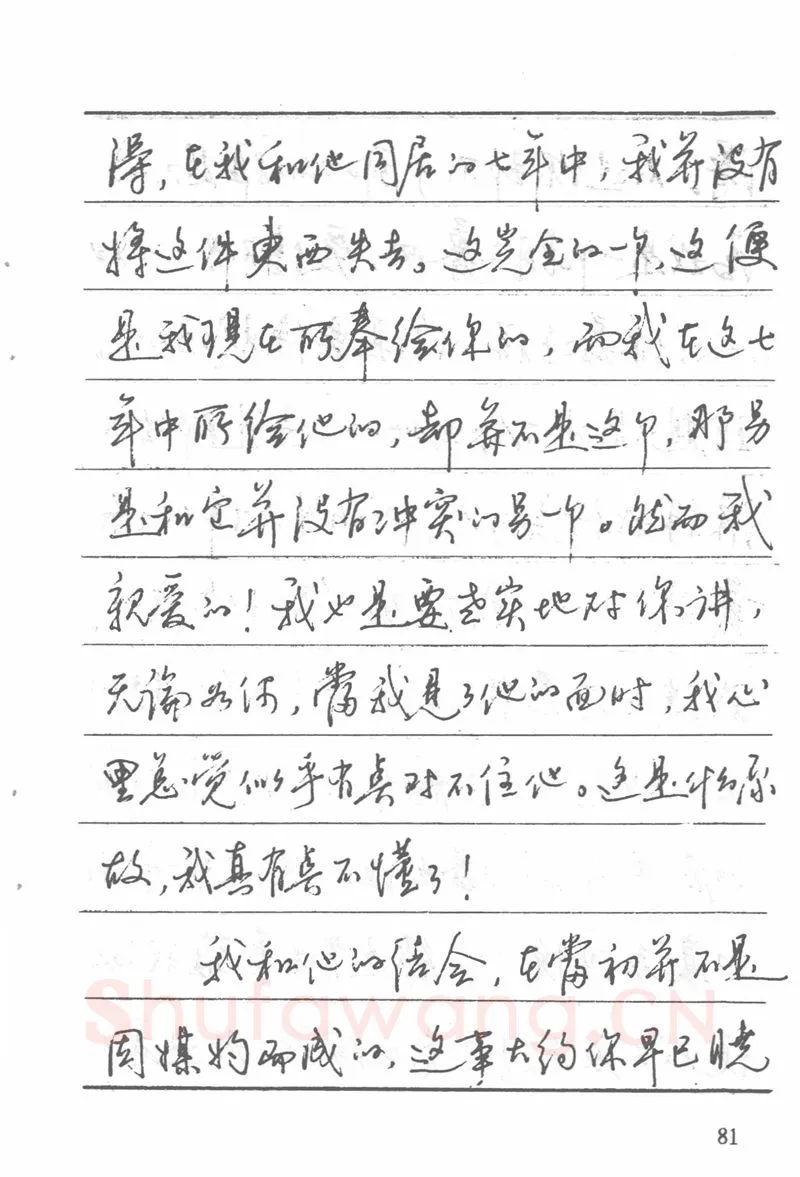 得，在我和他同居的七年中，我并没有
将这件東西失去。这完全的一个，这便
是我现在所奉给你的，而我在这七
年中所给他的，却并不是这个，那另
是和它并没有冲突的另一个。然而我
親爱的！我也是要老实地对你讲，
无論如何，當我是了他的面时，我心
里总觉似乎有点对不住他。这是什么原
故，我真有点不懂了！
我和他的结合，在當初并不是
因媒妁而成的，这事大约你早已晓
Shufawang.CN
81